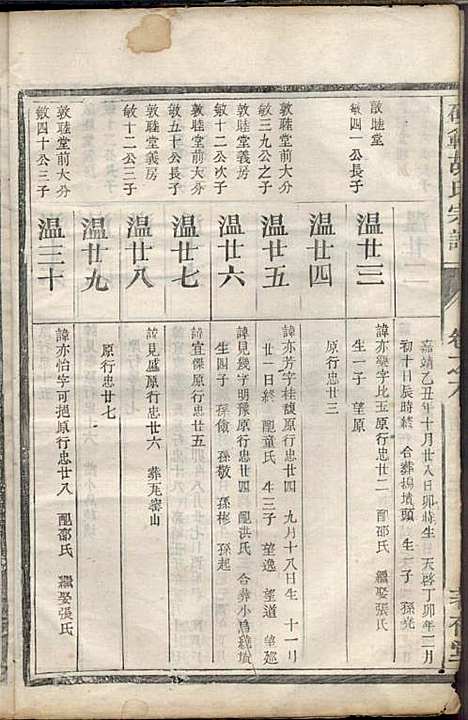 胡氏宗譜
卷之六
嘉靖乙丑年十月廿八日卯時生 天啓丁卯年二月
初十日辰時終 合葬塢墳頭 生一子 孫堯
敦睦堂
敏四一公長子
温廿三
諱亦樂字比玉原行忠廿二 配邵氏 繼娶張氏
生一子 望原
温廿四
原行忠廿三
敦睦堂前大分
敏三九公之子
温廿五
諱亦芳字桂馥原行忠廿四 九月十八日生 十一月
廿一日終 配童氏 生三子 望逸 望道 望廵
敦睦堂義房
敏十二公次子
温廿六
諱見幾字明豫原行忠廿四 配洪氏 合葬小昌
生四子 孫偹 孫敬 孫彬 孫起
敦睦堂前大分
敏五十公長子
温廿七
諱宜傑原行忠廿五
敦睦堂義房
敏十二公三子
温廿八
諱見盛原行忠廿六 葬瓦窑山
温廿九
原行忠廿七
敦睦堂前大分
敏四十公三子
温三十
諱亦怡字可挹原行忠廿八 配邵氏 繼娶張氏